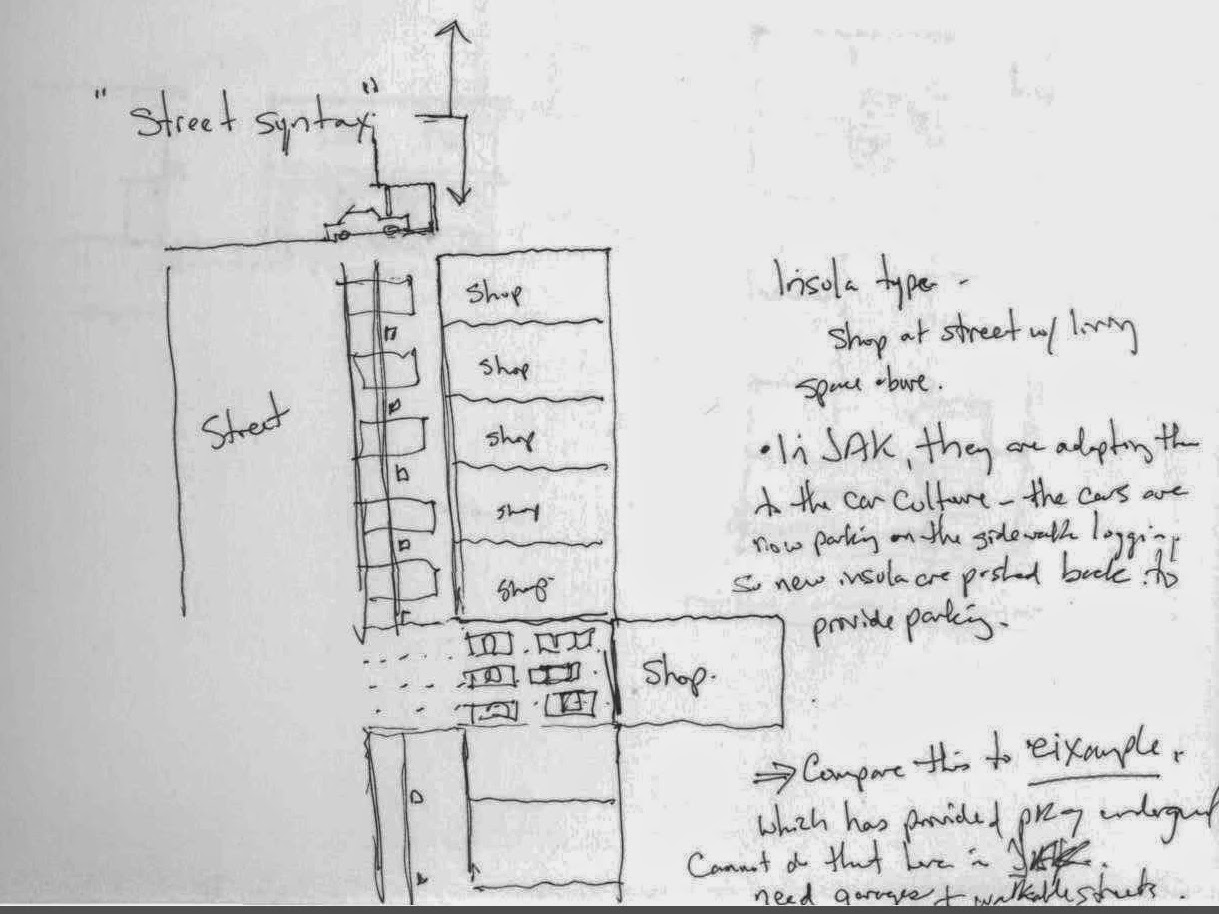 "Street syntax"
Shop
Shop
Street
Shop
Shop
Shop
Shop.
Insula type -
Shop at street w/ living
space above.
• In JAK, they are adapting them
to the car culture - the cars are
now parking on the sidewalk
so new insula are pushed back to
provide parking.
⇒ Compare this to eixample,
which has provided pkg underground
Cannot do that here in JAK.
need garages + walkable streets.